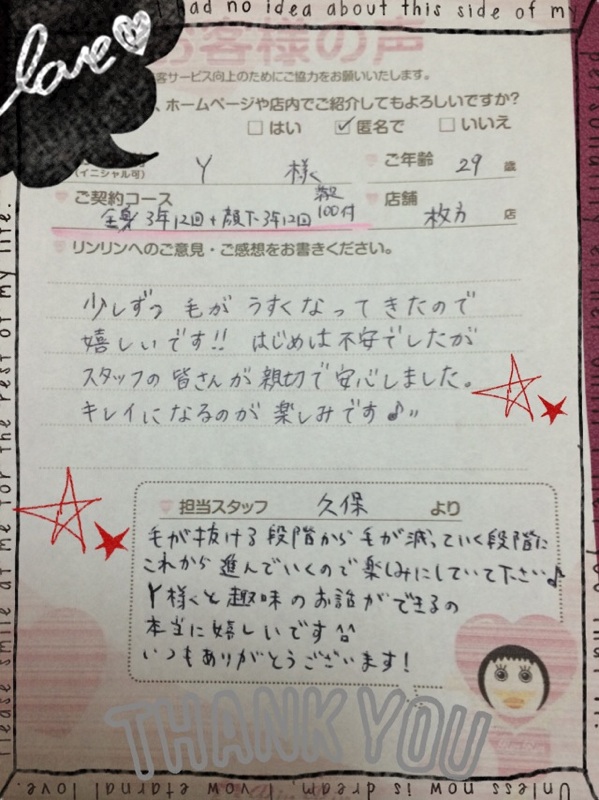 I had no idea about this side of my
love
お客様の声
客サービス向上のためにご協力をお願いいたします。
、ホームページや店内でご紹介してもよろしいですか?
□はい ☑匿名で □いいえ
(イニシャル可) Y 様 ご年齢 29 歳
ご契約コース 店舗 枚方 店
全身3年12回+顔下3年12回 100付
リンリンへのご意見・ご感想をお書きください。
少しずつ 毛が うすくなって きたので
嬉しいです!! はじめは不安でしたが
スタッフの皆さんが親切で安心しました。
キレイになるのが 楽しみです♪〃
担当スタッフ 久保 より
毛が抜ける段階から毛が減っていく段階に
これから進んでいくので楽しみにしていて下さい♪
Y様と趣味のお話ができるの
本当に嬉しいです^^
いつもありがとうございます!
THANK YOU
Please smile at me for the rest of my life.
Unless now is dream. I vow eternal love.